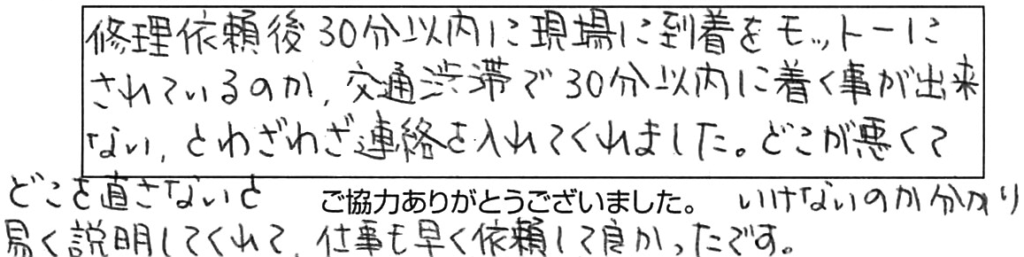 修理依頼後30分以内に現場に到着をモットーに
されているのか、交通渋滞で30分以内に着く事が出来
ない、とわざわざ連絡を入れてくれました。どこが悪くて
どこを直さないと ご協力ありがとうございました。 いけないのか分かり
易く説明してくれて、仕事も早く依頼して良かったです。